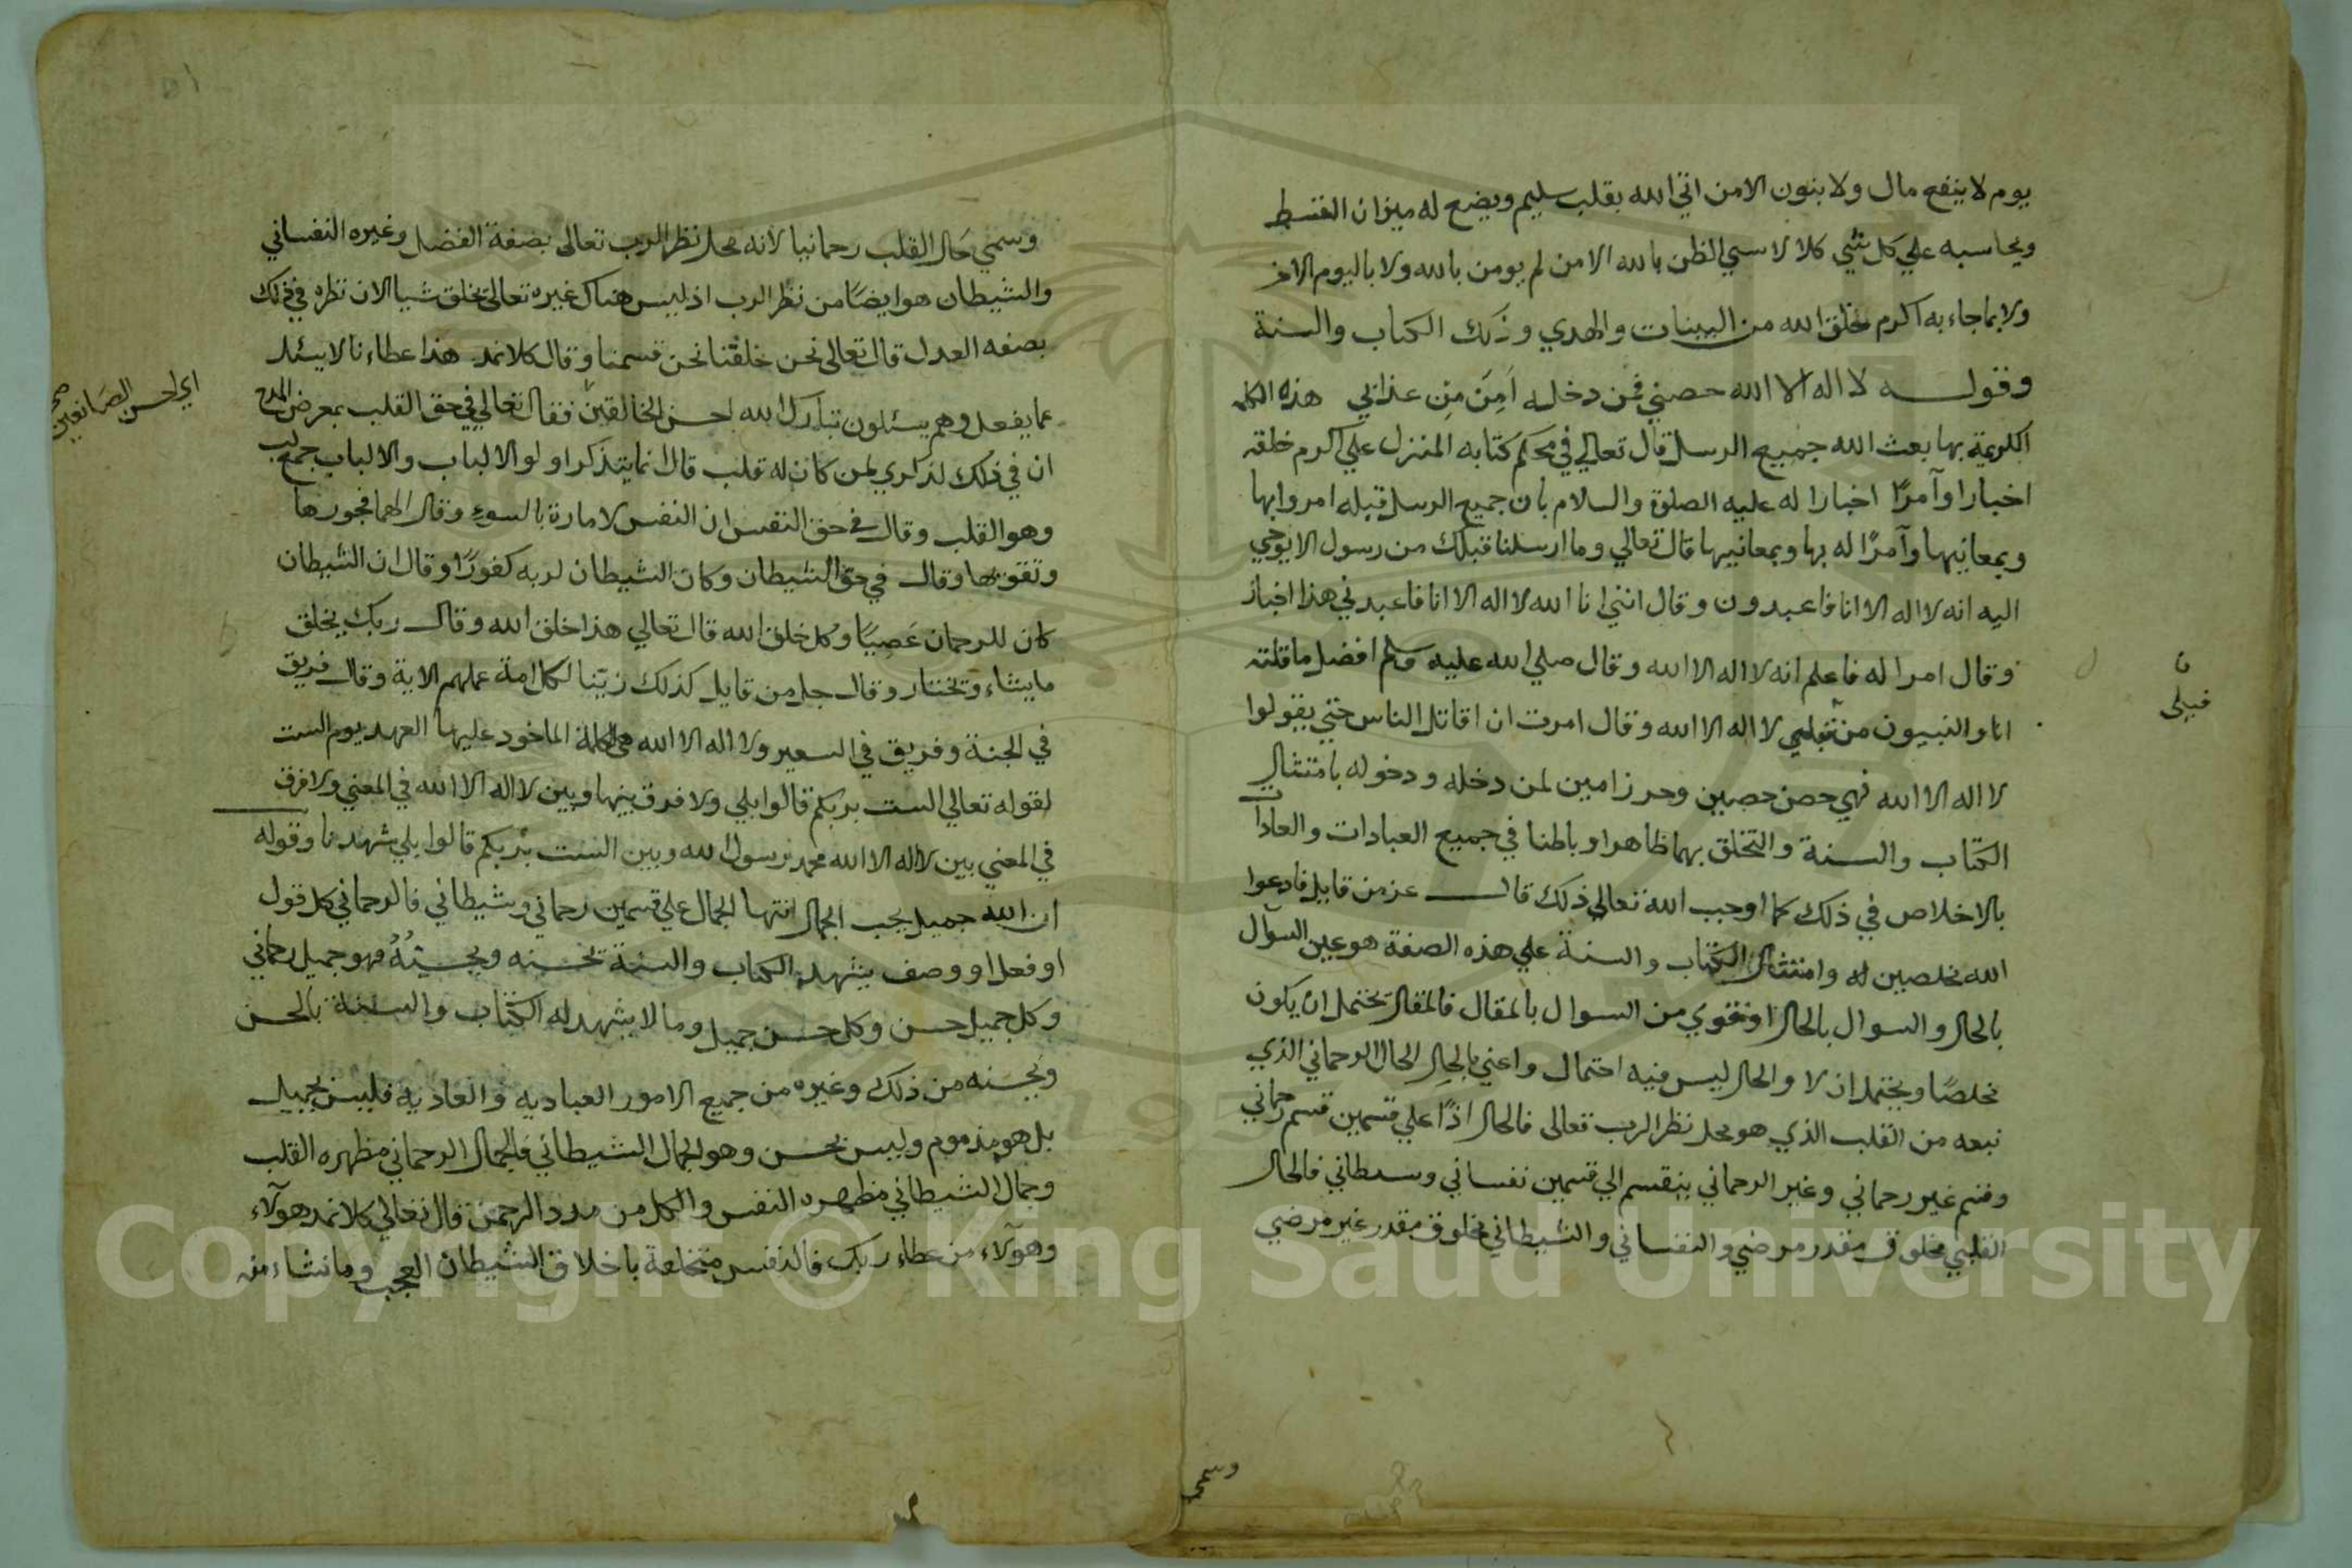 يوم لا ينفع مال ولا بنون الا من اتي الله بقلب سليم ويضع له ميزان القسط
ويحاسبه علي كل شي كلا لا سيي الظن بالله الا من لم يومن بالله ولا باليوم الاخر
ولا بما جاء به اكرم خلق الله من البينات والهدي وذلك الكتاب والسنة
وقوله لا اله الا الله حصني فمن دخله اَمِنَ مِن عذابي هذه الكلمة
الكريمة بها بعث الله جميع الرسل قال تعالي في محكم كتابه المنزل علي اكرم خلقه
اخبارا وآمرًا اخبارا له عليه الصلوة والسلام بان جميع الرسل قبله امروا بها
وبمعانيها وآمرًا له بها وبمعانيها قال تعالي وما ارسلنا قبلك من رسول الا يوحي
اليه انه لا اله الا انا فاعبدون وقال انني انا الله لا اله الا انا فاعبدني هذا اخبار
وقال امرا له فاعلم انه لا اله الا الله وقال صلي الله عليه وسلم افضل ما قلته
انا والنبيون من قبلي لا اله الا الله وقال امرت ان اقاتل الناس حتي يقولوا
قبلي
لا اله الا الله فهي حصن حصين وحرز امين لمن دخله ودخوله بامتثال
الكتاب والسنة والتخلق بهما ظاهرا وباطنا في جميع العبادات والعادات
بالاخلاص في ذلك كما اوجب الله تعالي ذلك قال عز من قايل فادعوا
الله مخلصين له وامتثال الكتاب والسنة علي هذه الصفة هو عين السوآل
بالحال والسوال بالحال اقوي من السوال بالمقال فالمقال يحتمل ان يكون
مخلصًا ويحتمل ان لا والحال ليس فيه احتمال واعني بالحال الحال الرحماني الذي
نبعه من القلب الذي هو محل نظر الرب تعالى فالحال اذًا علي قسمين قسم رحماني
وقسم غير رحماني وغير الرحماني ينقسم الي قسمين نفساني وسيطاني فالحال
القلبي مخلوق مقدر مرضي والنفساني والشيطاني مخلوق مقدر غير مرضي
وسمي
وسمي حَال القلب رحمانيا لانه محل نظر الرب تعالى بصفة الفضل وغيره النفساني
والشيطان هو ايضًا من نظر الرب اذ ليس هناك غيره تعالى يخلق شيا الا ان نظره في ذلك
بصفه العدل قال تعالى نحن خلقنا نحن قسمنا وقال كلا نمد هذا عطاءنا لا يسئل
عما يفعل وهم يسئلون تبارك الله احسن الخالقين فقال تعالي في حق القلب بمعرض المدح
اي احسن الصانعين صح
ان في ذلك لذكري لمن كان له قلب قال انما يتذكر اولو الالباب والالباب جمع لب
وهو القلب وقال في حق النفس ان النفس لامارة بالسوء وقال الهما فجورها
وتقوىها وقال في حق الشيطان وكان الشيطان لربه كفورًا وقال ان الشيطان
كان للرحمان عَصِيًا وكل خلق الله قال تعالي هذا خلق الله وقال ربك يخلق
ما يشاء ويختار وقال جل من قايل كذلك زينا لكل امة عملهم الاية وقال فريق
في الجنة وفريق في السعير ولا اله الا الله هي الكلمة الماخود عليها العهد يوم الست
لقوله تعالي الست بربكم قالوا بلي ولا فرق بينها وبين لا اله الا الله في المعني ولا فرق
في المعني بين لا اله الا الله محمد رسول الله وبين الست بربكم قالوا بلي شهدنا وقوله
ان الله جميل يحب الجمال انتها الجمال علي قسمين رحماني وشيطاني فالرحماني كل قول
او فعل او وصف يشهد الكتاب والسنة بحسنه ويحسنهُ فهو جميل رحماني
وكل جميل حسن وكل حسن جميل وما لا يشهد له الكتاب والسنة بالحسن
ويحسنه من ذلك وغيره من جميع الامور العباديه والعاديه فليس بجميل
بل هو مذموم وليس بحسن وهو الجمال الشيطاني فالجمال الرحماني مظهره القلب
وجمال الشيطاني مظهره النفس والكل من مدد الرحمن قال تعالي كلا نمد هوآلاء
وهوآلاء من عطاء ربك فالنفس متخلقة باخلاق الشيطان العجب وما نشاء منه
Copyright © King Saud University